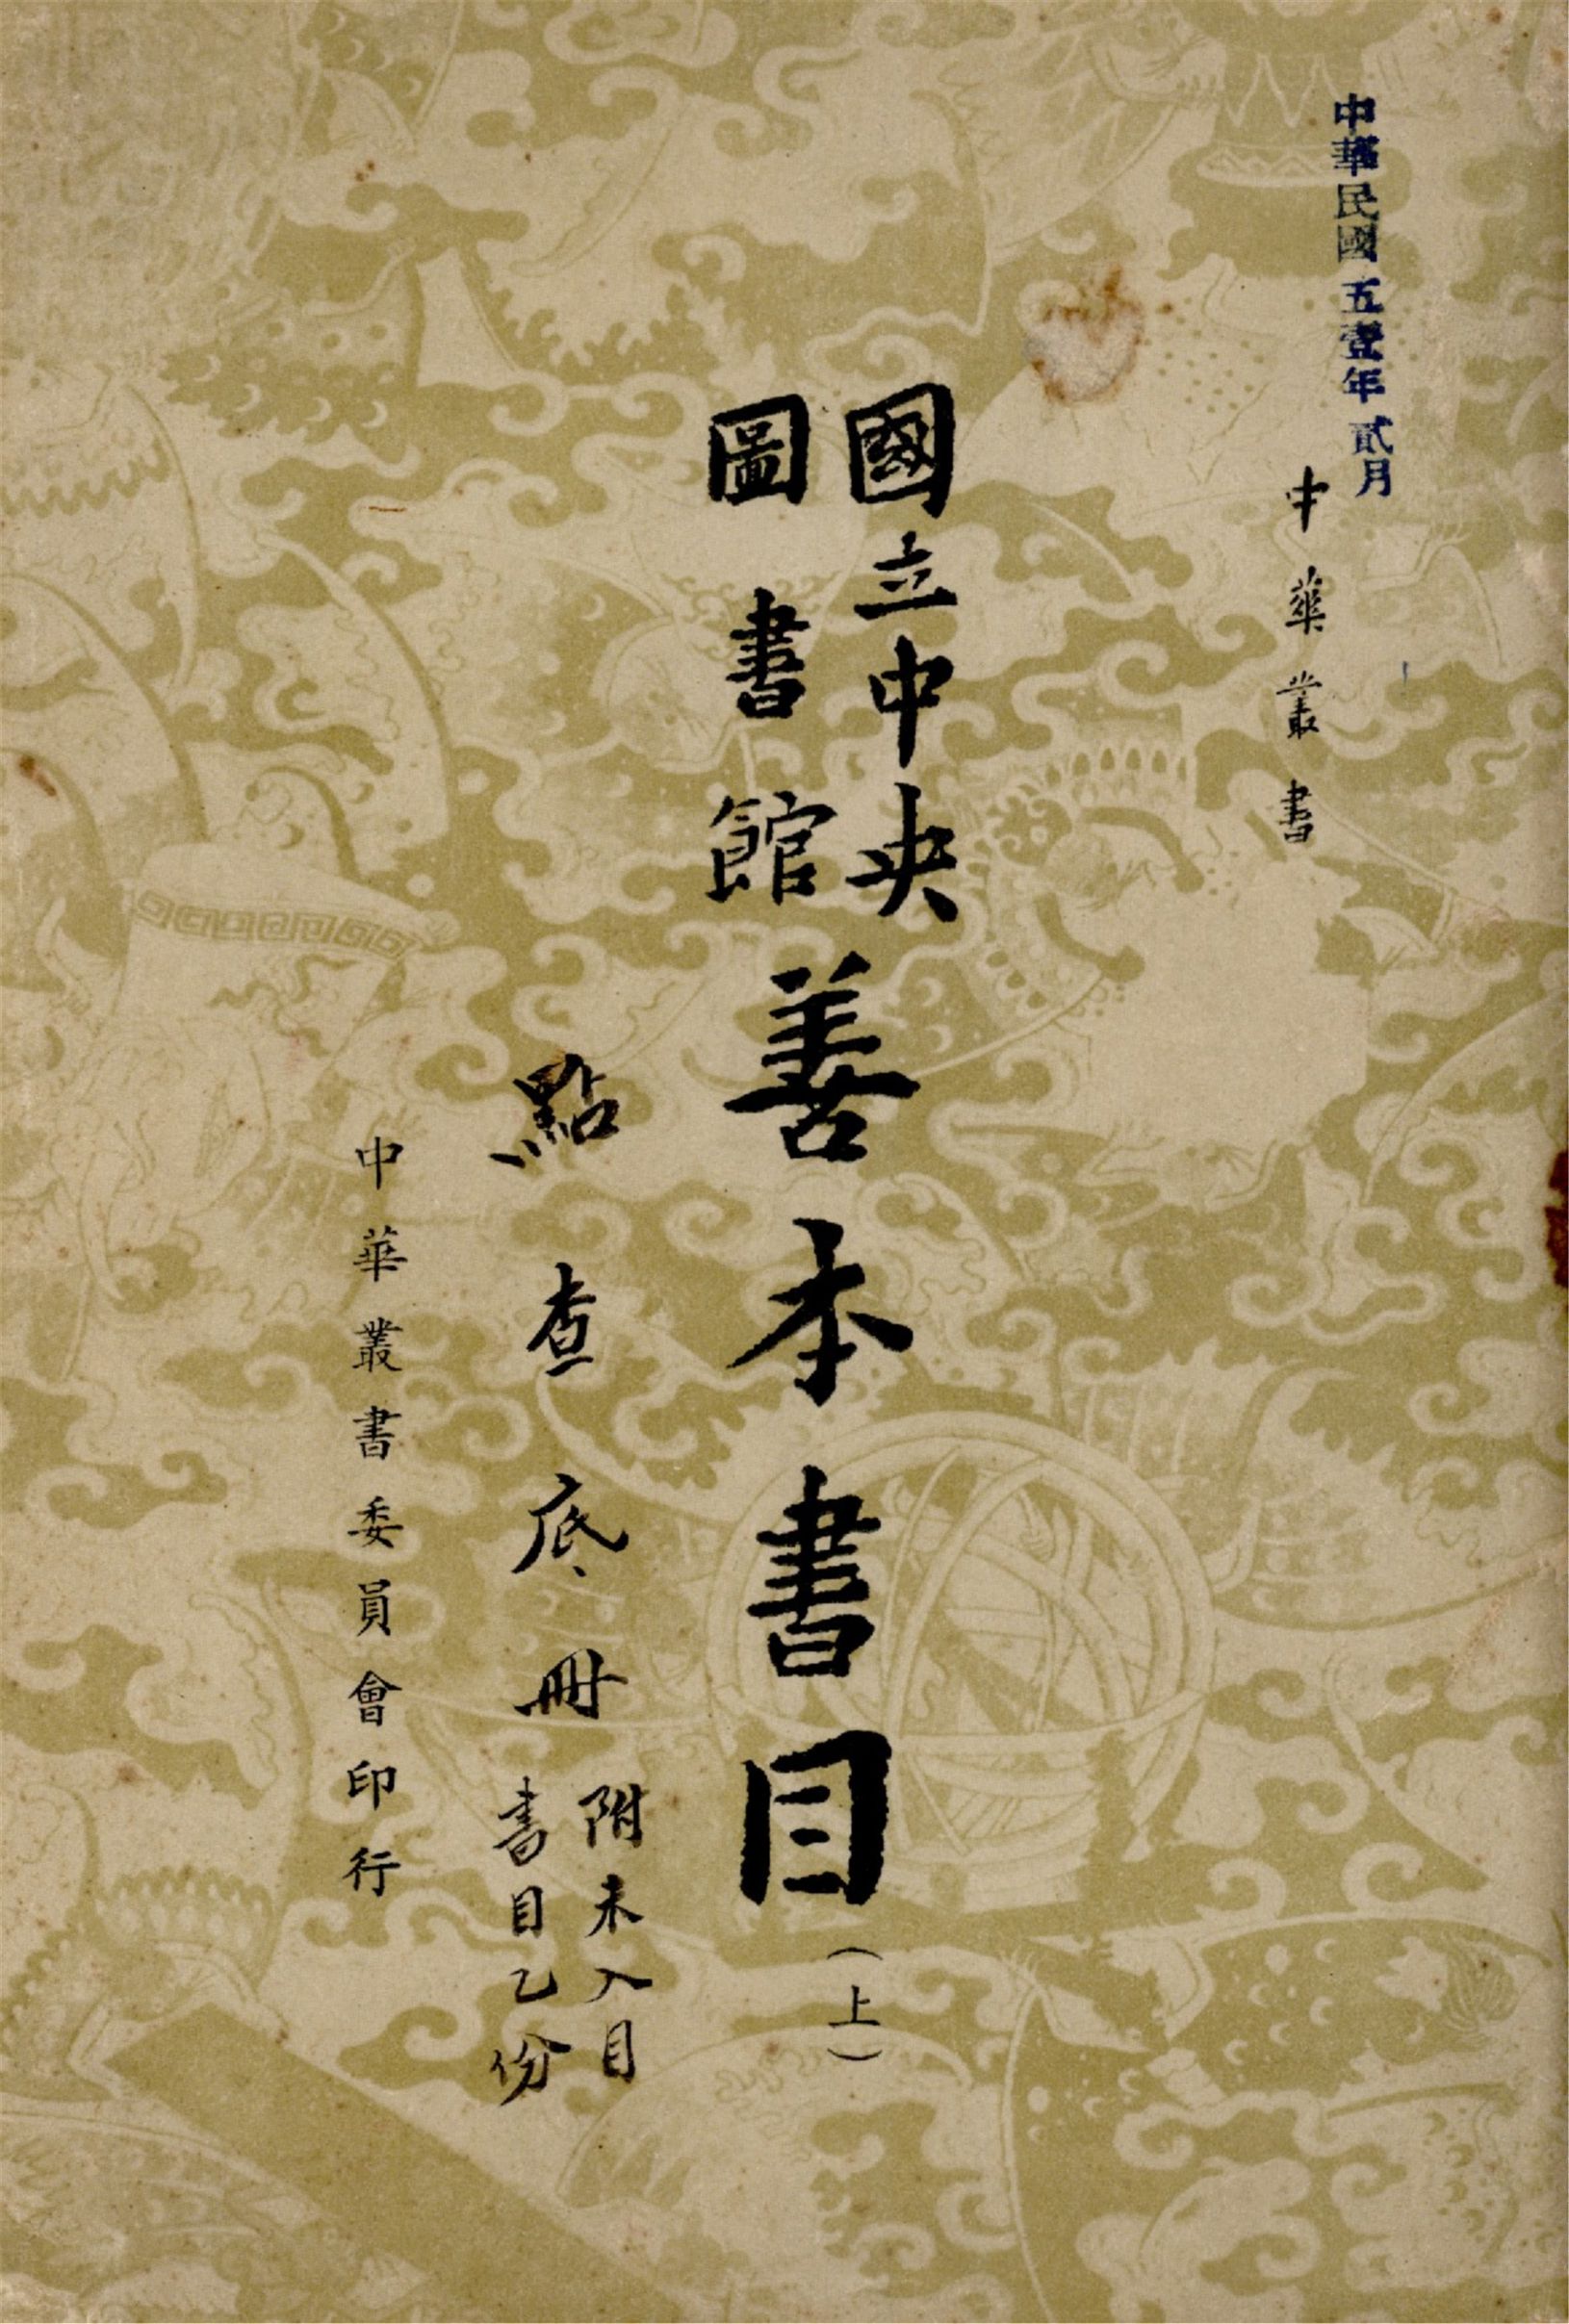 中華民國五壹年貳月
中華叢書
國立中央
圖書館
善本書目（上）
點查底冊
附未入目
書目乙份
中華叢書委員會印行